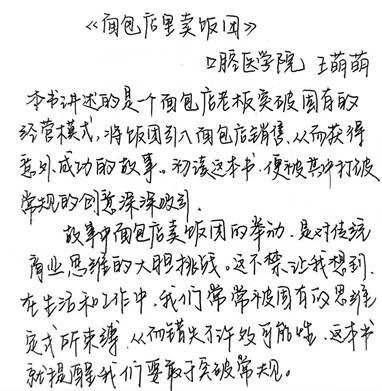 《面包店里卖饭团》
口腔医学院 王萌萌
本书讲述的是一个面包店老板突破固有的
经营模式，将饭团引入面包店销售，从而获得
意外成功的故事。初读这本书，便被其中打破
常规的创意深深吸引。
故事中面包店卖饭团的举动，是对传统
商业思维的大胆挑战。这不禁让我想到，
在生活和工作中，我们常常被固有的思维
定式所束缚，从而错失了许多可能性，这本书
就提醒我们要敢于突破常规。